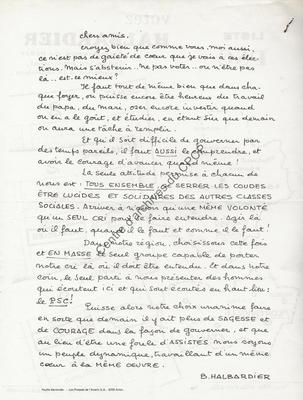 chers amis,
croyez bien que comme vous, moi aussi,
ce n'est pas de gaieté de coeur que je vais à ces élec-
tions. Mais s'abstenir.. ne pas voter.. ou n'être pas
là.. est-ce mieux?
Il faut tout de même bien que dans cha-
que foyer, on puisse encore être heureux du travail
du papa, du mari, oser encore investir quand
on en a le goût, et étudier, en étant sûr que demain
on aura une tâche à remplir.
Et qu'il soit difficile de gouverner par
des temps pareils, il faut AUSSI le comprendre, et
avoir le courage d'avancer quand même!
La seule attitude permise à chacun de
nous est: TOUS ENSEMBLE SE SERRER LES COUDES
ÊTRE LUCIDES ET SOLIDAIRES DES AUTRES CLASSES
SOCIALES. Arriver à n'avoir qu'une MÊME VOLONTÉ
qu'un SEUL CRI pour le faire entendre. Agir là
où il faut, quand il le faut et comme il le faut!
Dans notre région, choisissons cette fois
et EN MASSE le seul groupe capable de porter
notre cri là où il doit être entendu. Et dans notre
coin, le seul parti à nous présenter des hommes
qui écoutent ici et qui sont écoutés en haut lieu:
le PSC!
Puisse alors notre choix unanime faire
en sorte que demain il y ait plus de SAGESSE et
de COURAGE dans la façon de gouverner, et que
au lieu d'être une foule d'ASSISTÉS nous soyons
un peuple dynamique, travaillant d'un même
coeur à la MÊME OEUVRE.
B. HALBARDIER